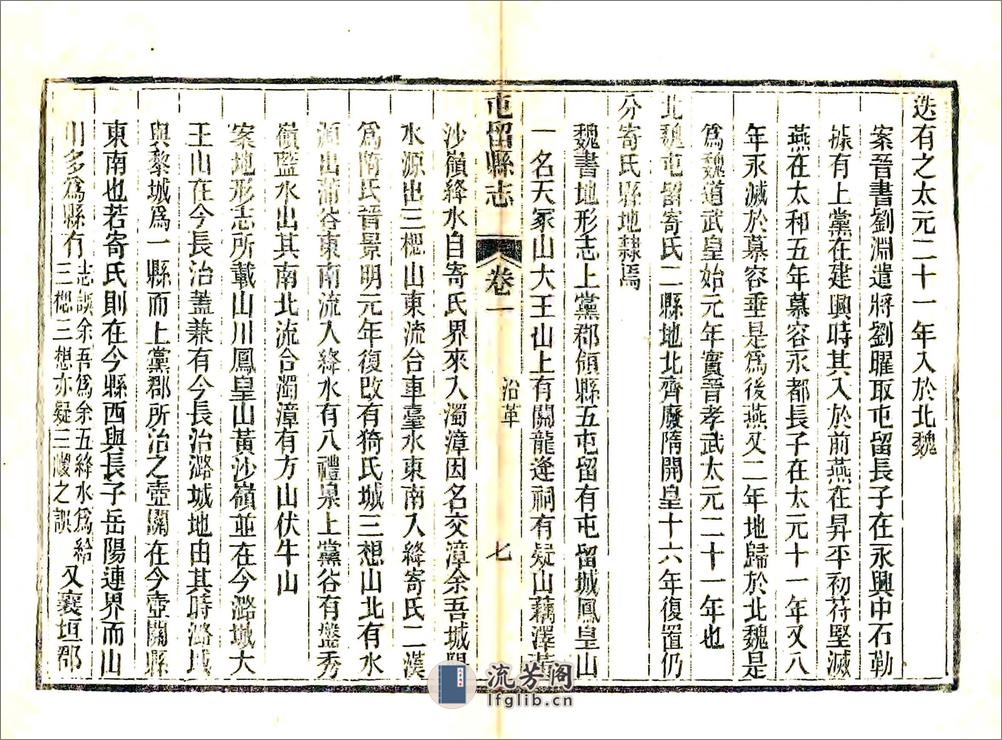 迭有之太元二十一年入於北魏
案晉書劉淵遣將劉曜取屯留長子在永興中石勒
據有上黨在建興時其入於前燕在昇平初苻堅滅
燕在太和五年慕容永都長子在太元十一年又八
年永滅於慕容垂是爲後燕又二年地歸於北魏是
爲魏道武皇始元年實晉孝武太元二十一年也
北魏屯留寄氏二縣地北齊廢隋開皇十六年復置仍
分寄氏縣地隸焉
魏書地形志上黨郡領縣五屯留有屯留城鳳皇山
一名天冢山大王山上有關龍逢祠有疑山藕澤黃
屯留縣志 卷一 沿革 七
沙嶺絳水自寄氏界來入濁漳因名交漳余吾城
水源出三𣖔山東流合車臺水東南入絳寄氏二漢
爲陭氏晉景明元年復改有猗氏城三想山北有水
源出蒲谷東南流入絳水有八禮泉上黨谷有盤秀
嶺藍水出其南北流合濁漳有方山伏牛山
案地形志所載山川鳳皇山黃沙嶺並在今潞城大
王山在今長治蓋兼有今長治潞城地由其時潞城
與黎城爲一縣而上黨郡所治之壺關在今壺關縣
東南也若寄氏則在今縣西與長子岳陽連界而山
川多爲縣有志誤余吾爲余五絳水爲給
三𣖔三想亦疑三㥶之誤又襄垣郡
流芳阁
lfglib.cn